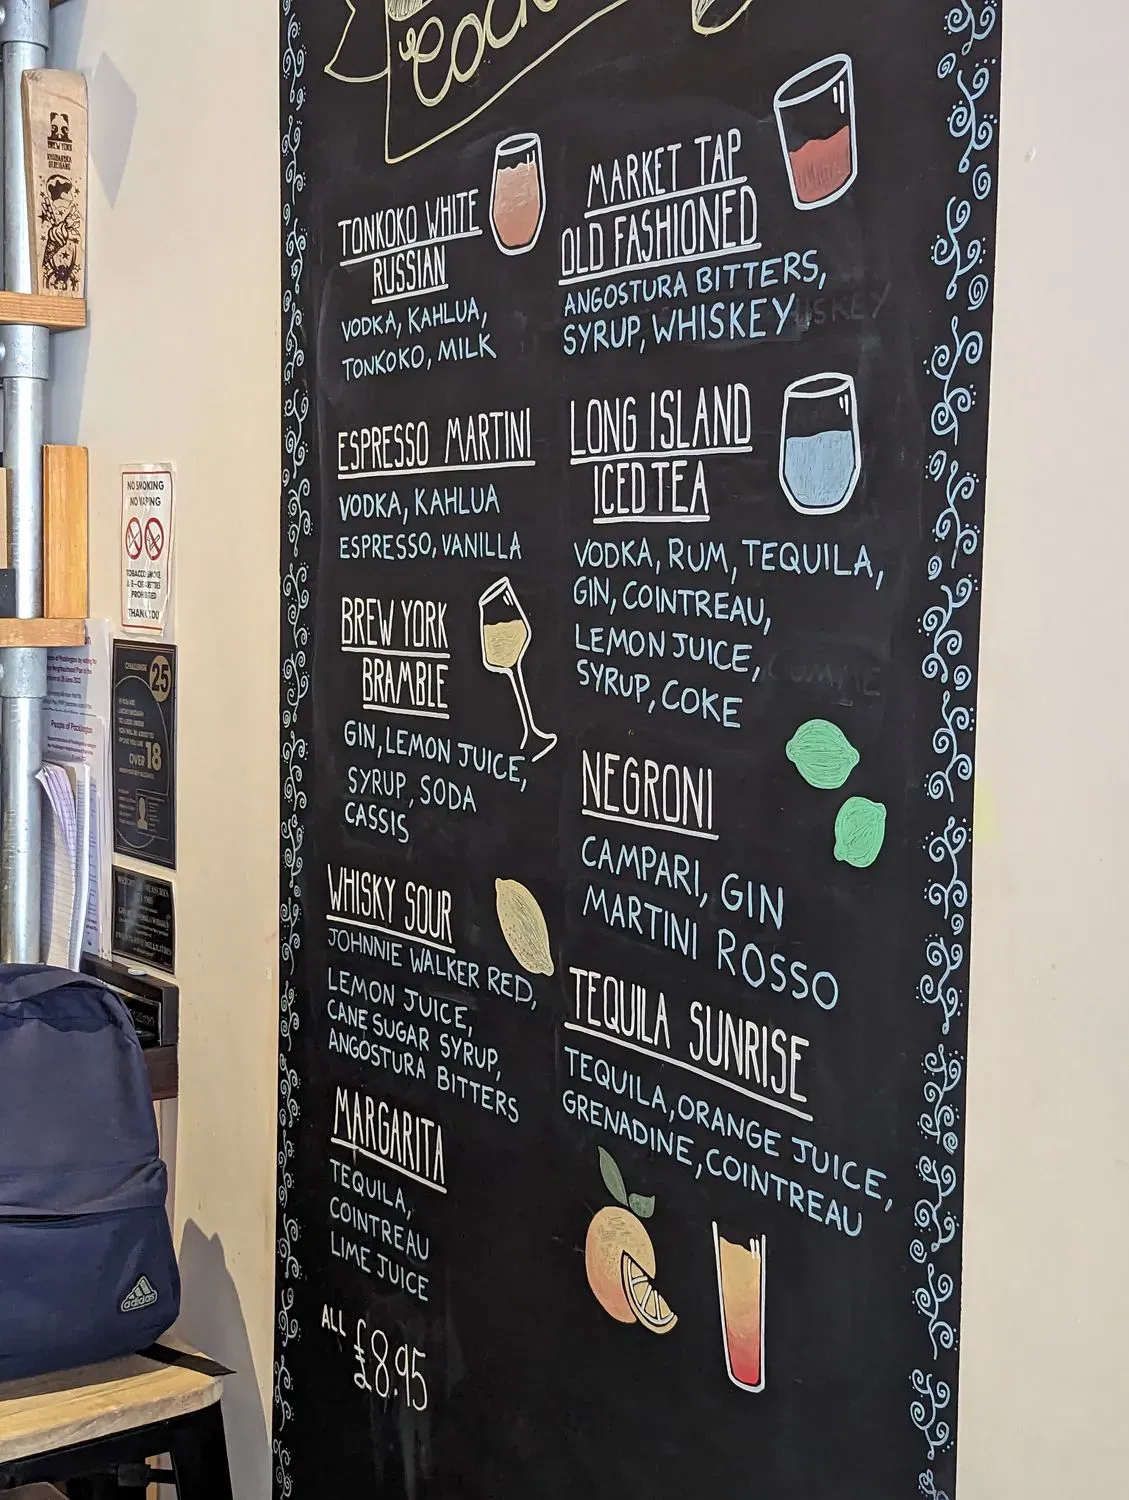 TONKOKO WHITE
RUSSIAN
VODKA, KAHLUA,
TONKOKO, MILK
ESPRESSO MARTINI
VODKA, KAHLUA
ESPRESSO, VANILLA
BREW YORK
BRAMBLE
GIN, LEMON JUICE,
SYRUP, SODA
CASSIS
WHISKY SOUR
JOHNNIE WALKER RED,
LEMON JUICE,
CANE SUGAR SYRUP,
ANGOSTURA BITTERS
MARGARITA
TEQUILA,
COINTREAU
LIME JUICE
ALL £8.95
MARKET TAP
OLD FASHIONED
ANGOSTURA BITTERS,
SYRUP, WHISKEY
LONG ISLAND
ICED TEA
VODKA, RUM, TEQUILA,
GIN, COINTREAU,
LEMON JUICE,
SYRUP, COKE
NEGRONI
CAMPARI, GIN
MARTINI ROSSO
TEQUILA SUNRISE
TEQUILA, ORANGE JUICE,
GRENADINE, COINTREAU
BREW YORK
NO SMOKING
NO VAPING
PROHIBITED
THANK YOU
CHALLENGE 25
OVER 18
People of Pocklington
adidas